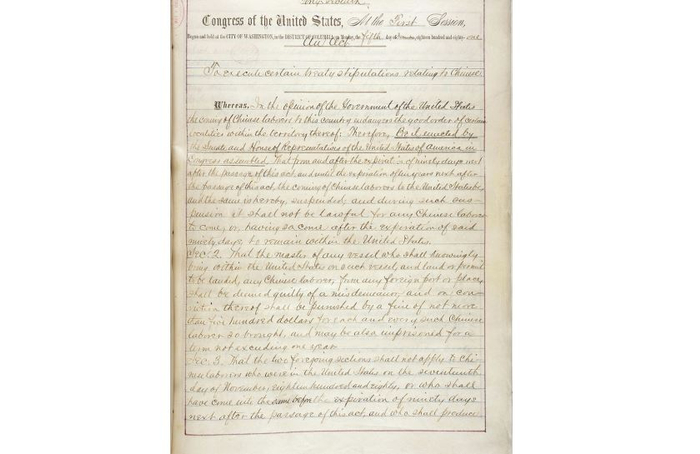 Congress of the United States, At the First Session,
Begun and held at the CITY OF WASHINGTON, in the DISTRICT OF COLUMBIA, on Monday, the fifth day of December, eighteen hundred and eighty-one
An Act
To execute certain treaty stipulations relating to Chinese.
Whereas, In the opinion of the Government of the United States
the coming of Chinese laborers to this country endangers the good order of certain
localities within the territory thereof: Therefore, Be it enacted by
the Senate and House of Representatives of the United States of America in
Congress assembled, That from and after the expiration of ninety days next
after the passage of this act, and until the expiration of ten years next after
the passage of this act, the coming of Chinese laborers to the United States be,
and the same is hereby, suspended; and during such sus-
pension it shall not be lawful for any Chinese laborer
to come, or, having so come after the expiration of said
ninety days, to remain within the United States.
Sec. 2. That the master of any vessel who shall knowingly
bring within the United States on such vessel, and land or permit
to be landed, any Chinese laborer, from any foreign port or place,
shall be deemed guilty of a misdemeanor, and on con-
viction thereof shall be punished by a fine of not more
than five hundred dollars for each and every such Chinese
laborer so brought, and may be also imprisoned for a
term not exceeding one year.
Sec. 3. That the two foregoing sections shall not apply to Chi-
nese laborers who were in the United States on the seventeenth
day of November, eighteen hundred and eighty, or who shall
have come into the same before the expiration of ninety days
next after the passage of this act, and who shall produce